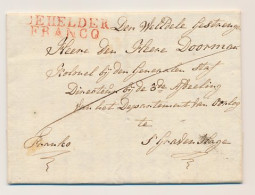 DEHELDER
FRANCO
Den Weledele Gestrenge
Heere den Heere Doorman
Kolonel bij den Generalen Staf
Directeur bij de 3de Afdeeling
van het Departement van Oorlog
te
Franko
S'Gravenhage